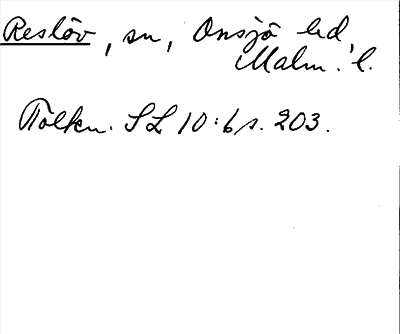 Reslöv, sn, Onsjö hd,
Malm. l.
Tolkn. SL 10:6 s. 203.